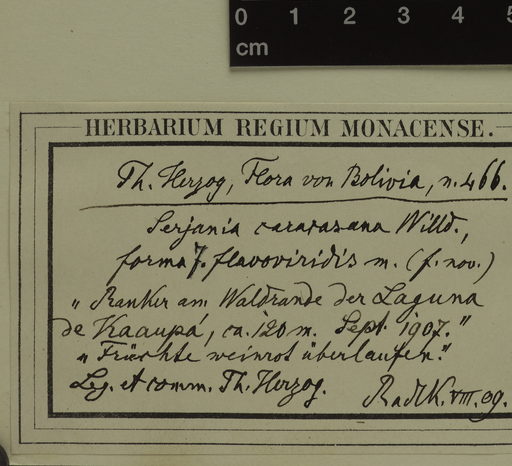 0 1 2 3 4 5
cm
HERBARIUM REGIUM MONACENSE.
Th. Herzog, Flora von Bolivia, n. 466.
Serjania caracasana Willd.,
forma 7. flavoviridis m. (f. nov.)
„Ranker am Waldrande der Laguna
de Kaaupá, ca. 120 m. Sept. 1907."
„Früchte weinrot überlaufen."
Leg. et comm. Th. Herzog.
Radlk. VIII. 09.